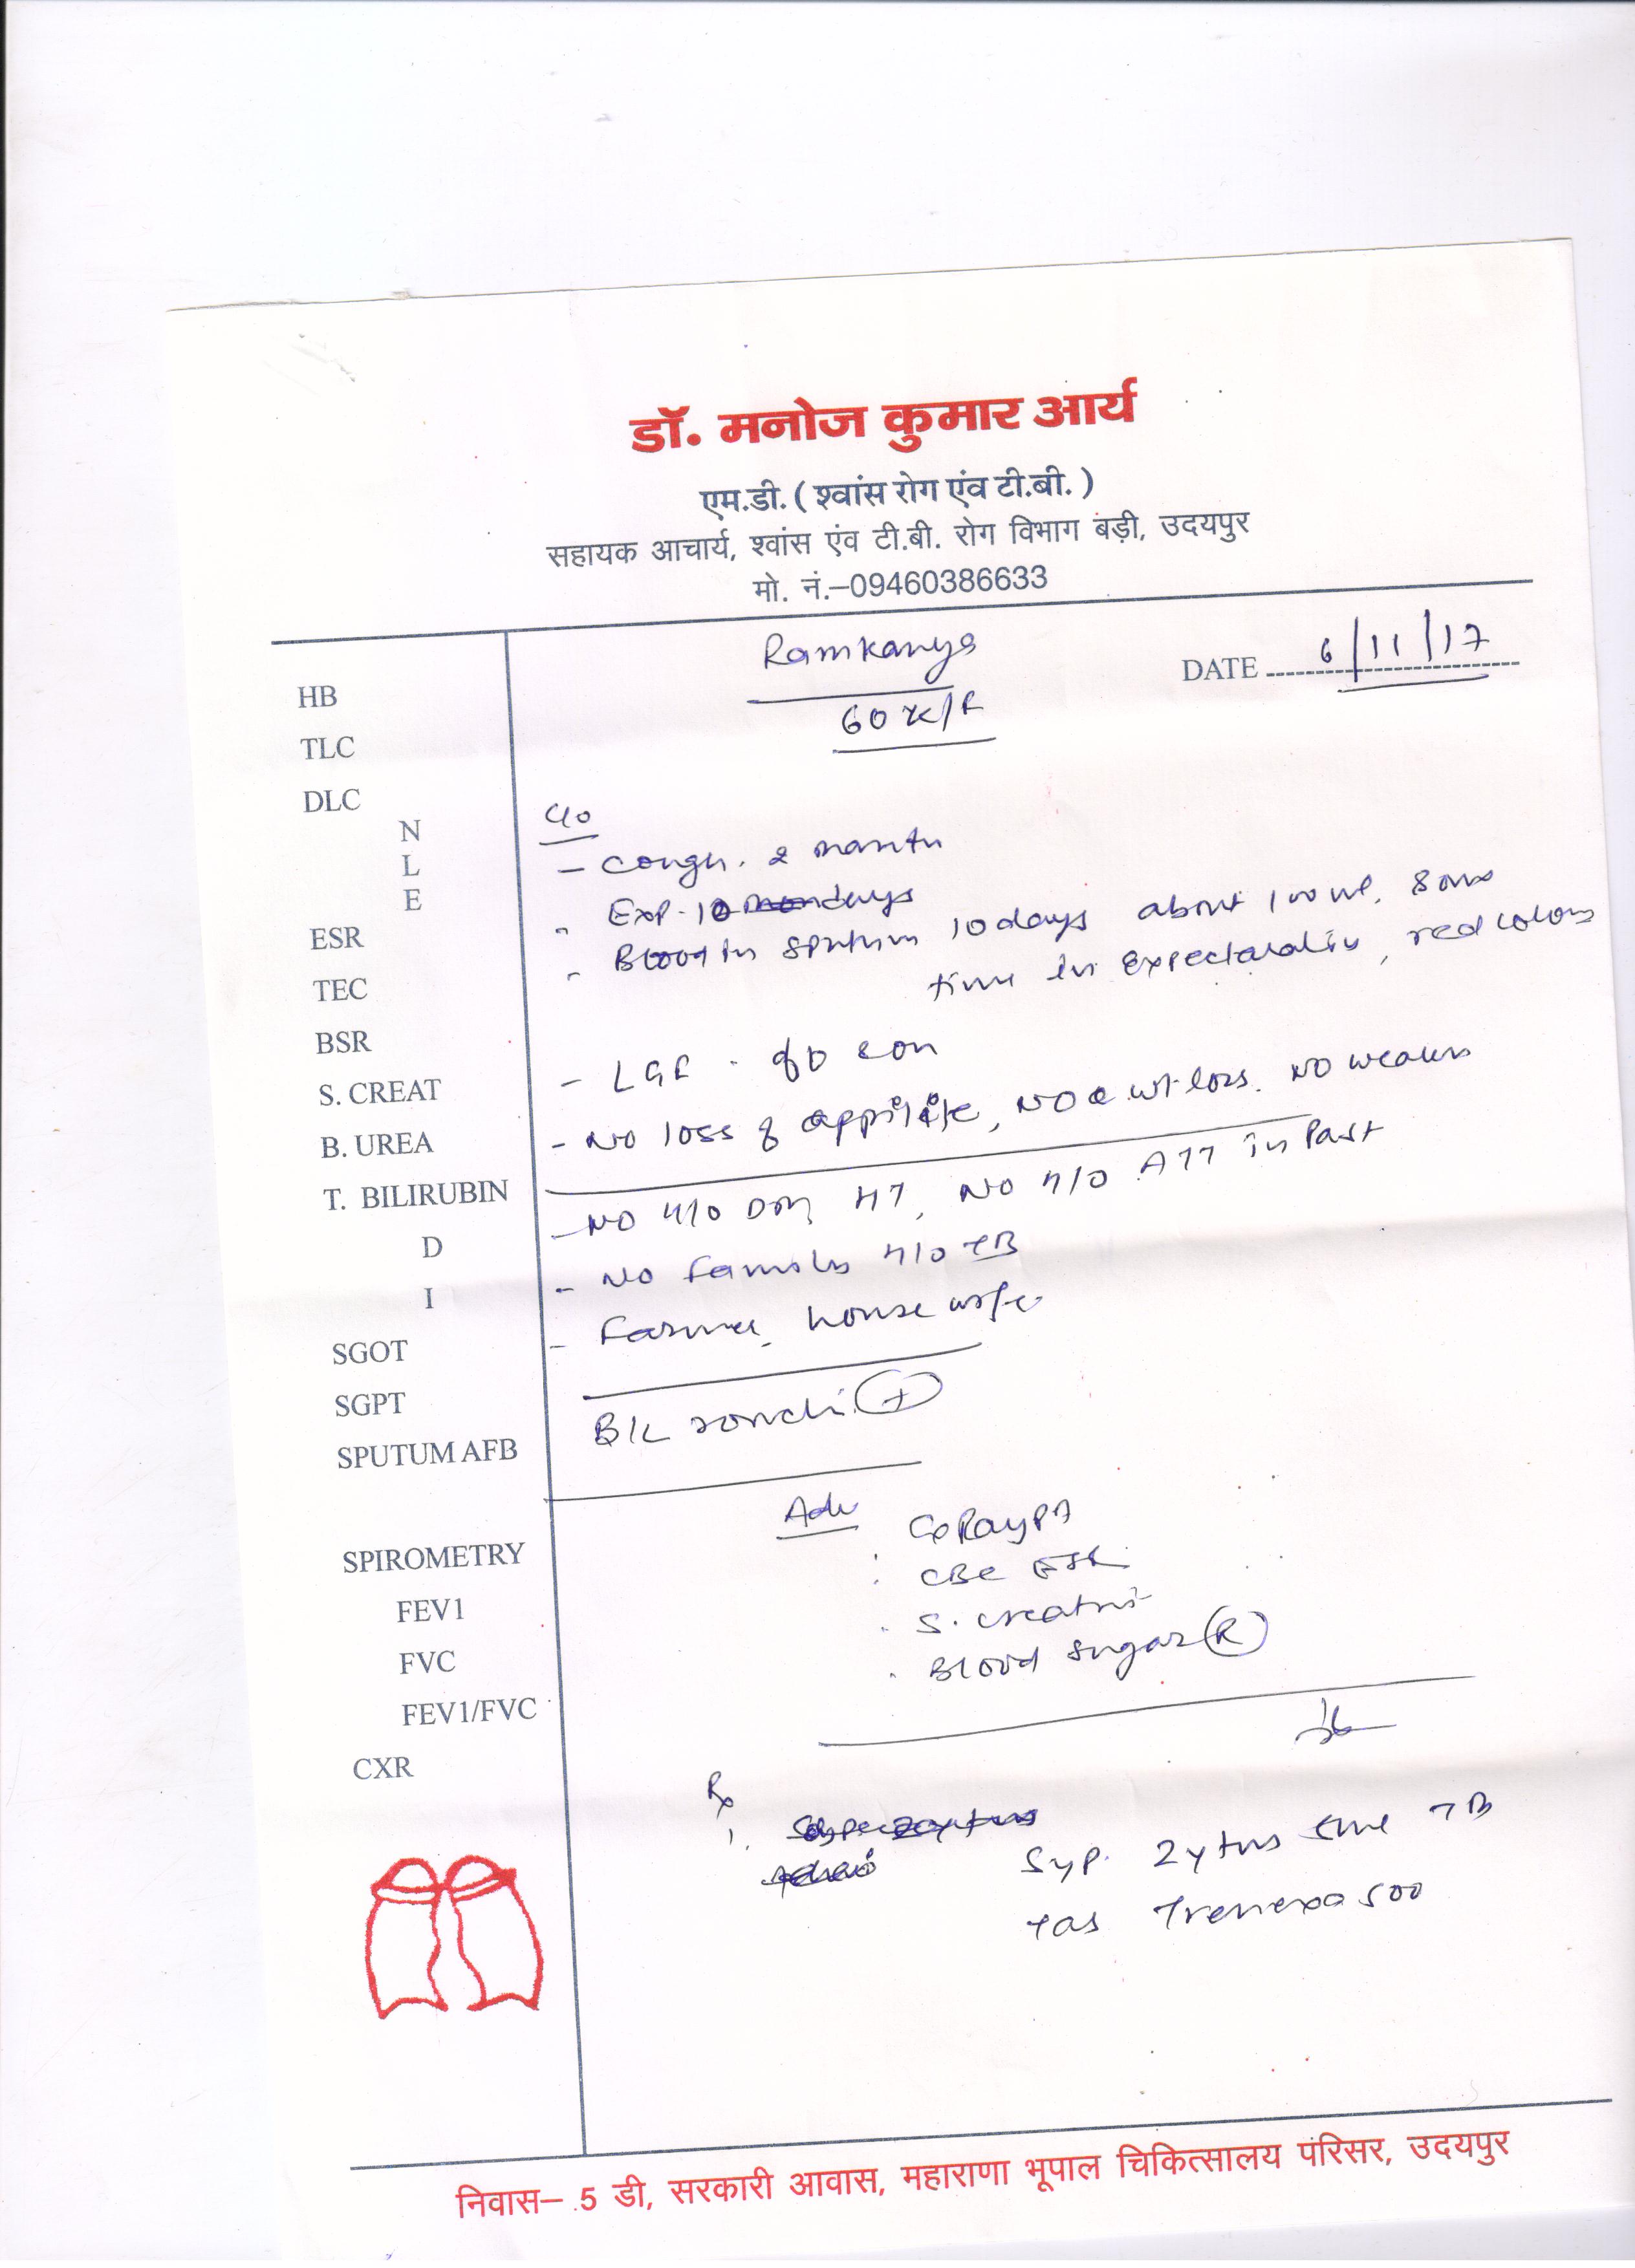 डॉ. मनोज कुमार आर्य
एम.डी. ( श्वांस रोग एंव टी.बी. )
सहायक आचार्य, श्वांस एंव टी.बी. रोग विभाग बड़ी, उदयपुर
मो. नं.–09460386633
Ramkanya
DATE 6/11/17
60 /F
HB
TLC
DLC
N
L
E
ESR
TEC
BSR
S. CREAT
B. UREA
T. BILIRUBIN
D
I
SGOT
SGPT
SPUTUM AFB
SPIROMETRY
FEV1
FVC
FEV1/FVC
CXR
C/o
- Cough. 2 month
- Exp. 10 days
- Blood in sputum 10 days about 100 ml,
time in expectoration, red colour
- LGF
- No loss of appitite, NO wt loss. NO weakness
- NO H/O DM, HT, NO H/O ATT in Past
- No family H/O TB
- Farmer, house wife
B/L ronchi (+)
Adv
. CBC ESR
. S. creatni
. Blood Sugar (R)
Rx
1.
Syp. Zytus
Tab Trenexa 500
निवास– 5 डी, सरकारी आवास, महाराणा भूपाल चिकित्सालय परिसर, उदयपुर